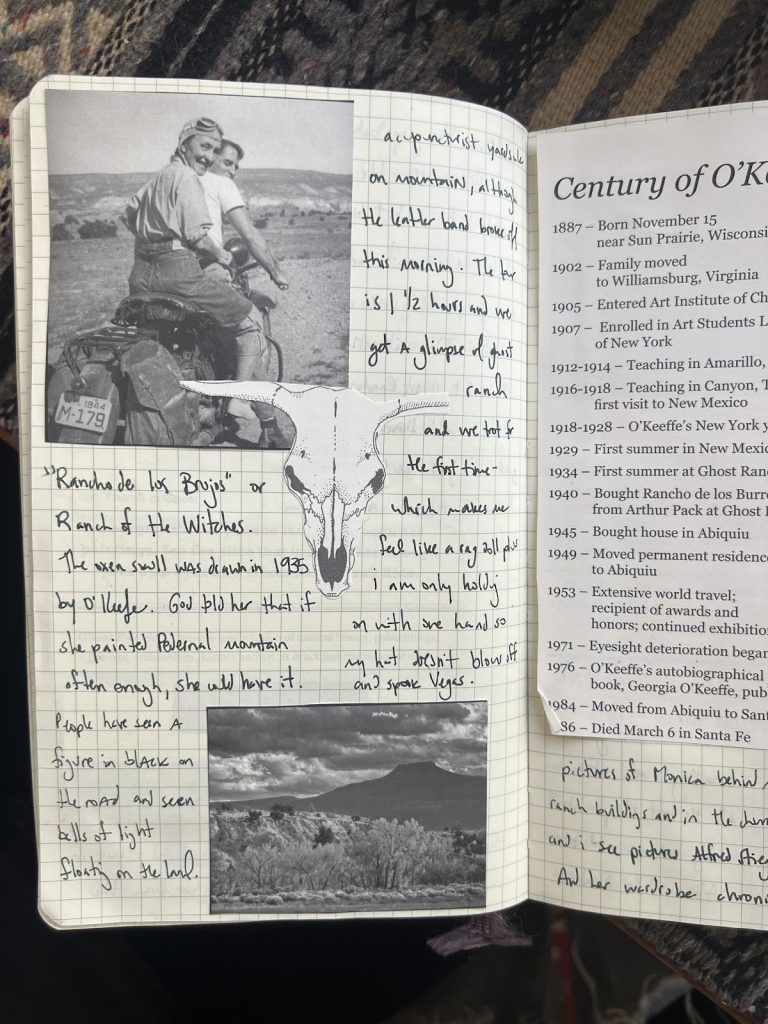 1944
M-179
acupuncturist yardsale
on mountain, although
the leather band broke off
this morning. The tour
is 1 1/2 hours and we
get a glimpse of ghost
ranch
and we trot for
the first time -
which makes me
feel like a rag doll plus
i am only holding
on with one hand so
my hat doesn't blow off
and spook Vegas.
"Rancho de los Brujos" or
Ranch of the Witches.
The oxen skull was drawn in 1935
by O'Keefe. God told her that if
she painted Pedernal mountain
often enough, she could have it.
People have seen a
figure in black on
the road and seen
balls of light
floating on the land.
Century of O'Ke
1887 – Born November 15
near Sun Prairie, Wisconsi
1902 – Family moved
to Williamsburg, Virginia
1905 – Entered Art Institute of Ch
1907 – Enrolled in Art Students L
of New York
1912-1914 – Teaching in Amarillo,
1916-1918 – Teaching in Canyon, T
first visit to New Mexico
1918-1928 – O'Keeffe's New York y
1929 – First summer in New Mexic
1934 – First summer at Ghost Ran
1940 – Bought Rancho de los Burro
from Arthur Pack at Ghost
1945 – Bought house in Abiquiu
1949 – Moved permanent residence
to Abiquiu
1953 – Extensive world travel;
recipient of awards and
honors; continued exhibition
1971 – Eyesight deterioration began
1976 – O'Keeffe's autobiographical
book, Georgia O'Keeffe, pub
1984 – Moved from Abiquiu to Sant
86 – Died March 6 in Santa Fe
pictures of Monica behind
ranch buildings and in the
and i see pictures Alfred Stieg
And her wardrobe chroni